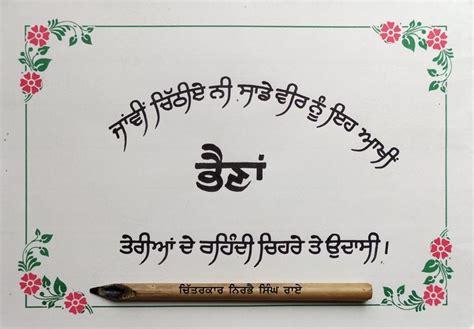 ਜਾਂਵੀਂ ਚਿੱਠੀਏ ਨੀ ਸਾਡੇ ਵੀਰ ਨੂੰ ਇਹ ਆਖੀਂ
ਭੈਣਾਂ
ਤੇਰੀਆਂ ਦੇ ਰਹਿੰਦੀ ਚਿਹਰੇ ਤੇ ਉਦਾਸੀ।
ਚਿੱਤਰਕਾਰ ਨਿਰਭੈ ਸਿੰਘ ਰਾਏ